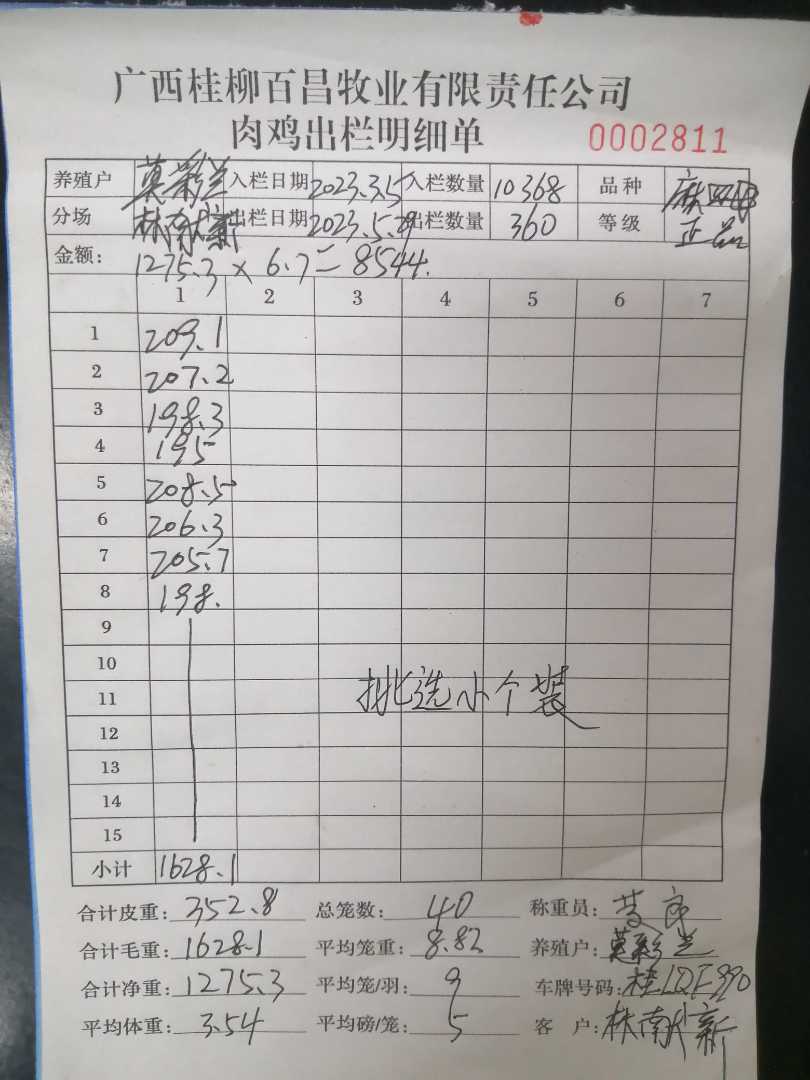 广西桂柳百昌牧业有限责任公司
肉鸡出栏明细单 0002811
养殖户 莫彩兰 入栏日期 2023.3.5 入栏数量 10368 品种 麻
分场 林南新 出栏日期 2023.5.29 出栏数量 360 等级 正品
金额: 1275.3 × 6.7 = 8544.
1 2 3 4 5 6 7
1 209.1
2 207.2
3 198.3
4 195
5 208.5
6 206.3
7 205.7
8 198.
9
10
11 挑选小个装
12
13
14
15
小计 1628.1
合计皮重: 352.8 总笼数: 40 称重员:
合计毛重: 1628.1 平均笼重: 8.82 养殖户: 莫彩兰
合计净重: 1275.3 平均笼/羽: 9 车牌号码: 桂LQF990
平均体重: 3.54 平均磅/笼: 5 客 户: 林南新